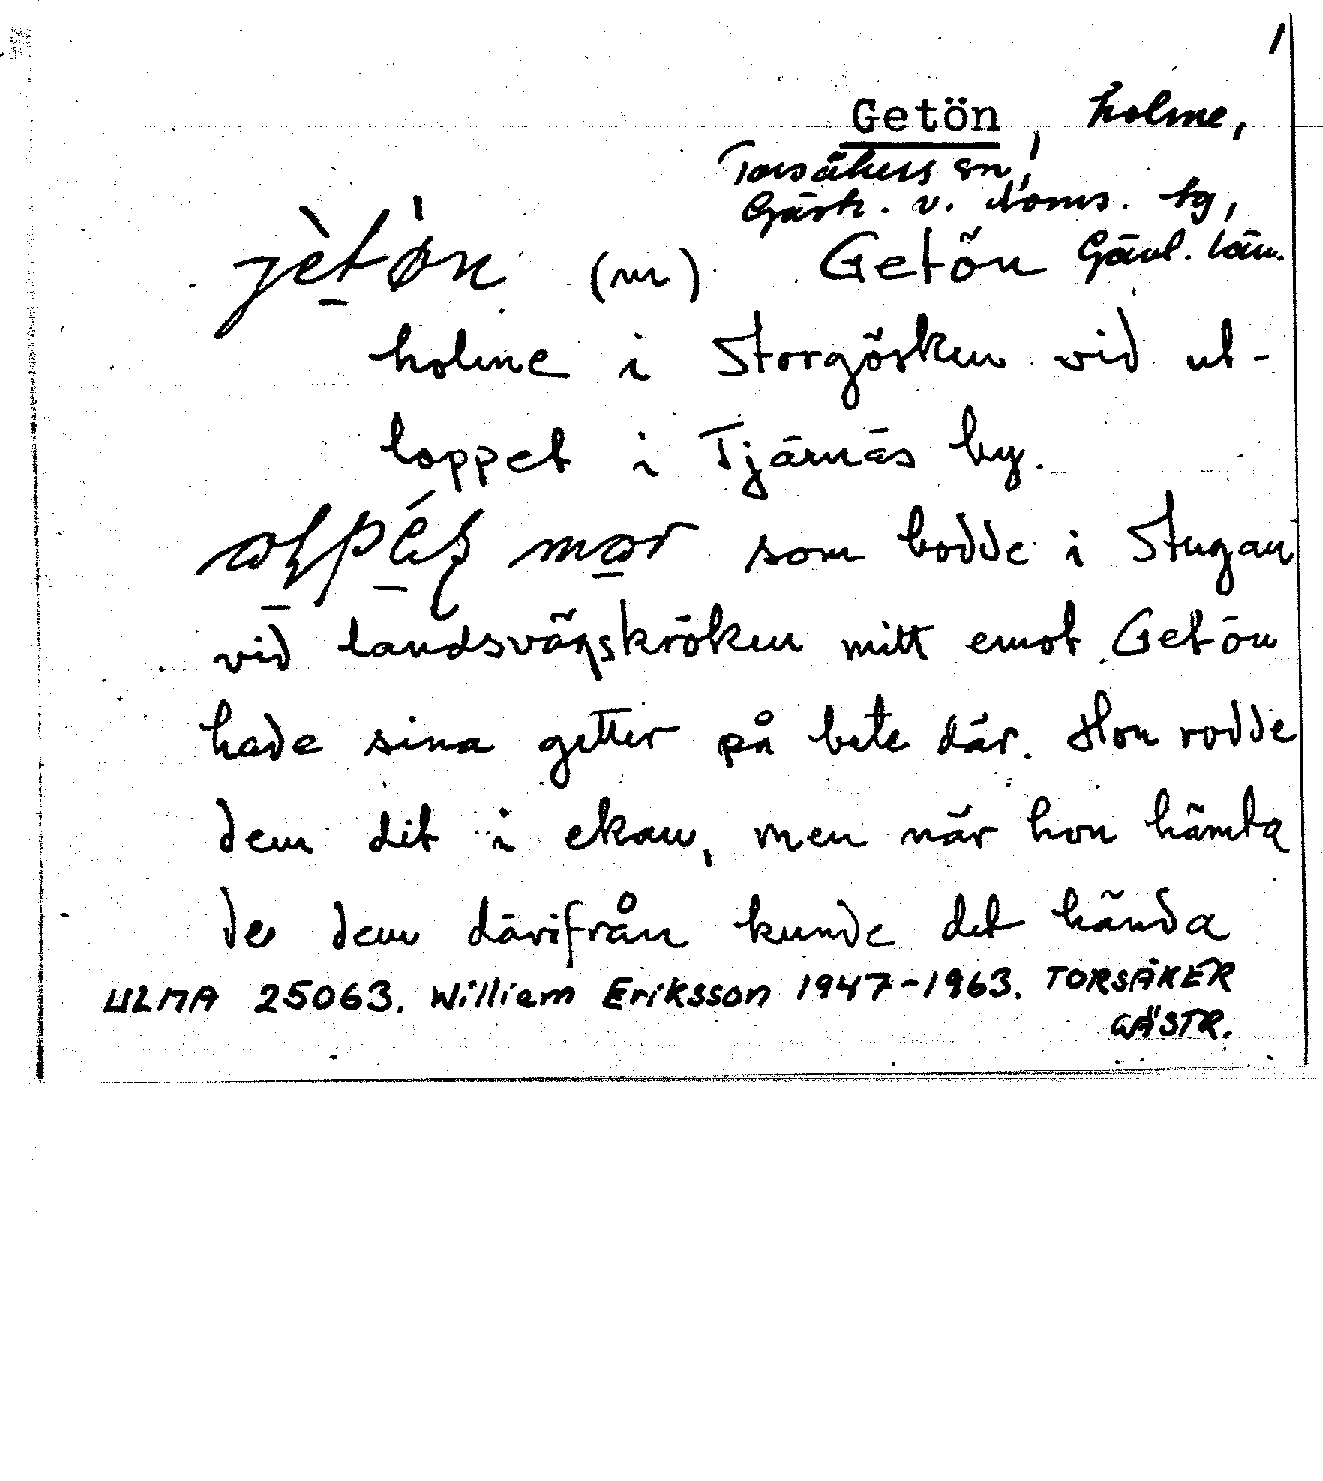 1
Getön, holme,
Torsåkers sn,
Gästr. v. doms. tg,
Gävl. län.
jètøn (m) Getön
holme i Storgösken vid ut-
loppet i Tjärnäs by.
mor som bodde i Stugan
vid landsvägskröken mitt emot Getön
hade sina getter på bete där. Hon rodde
dem dit i ekan, men när hon hämta
de dem därifrån kunde det hända
ULMA 25063. William Eriksson 1947-1963. TORSÅKER
GÄSTR.